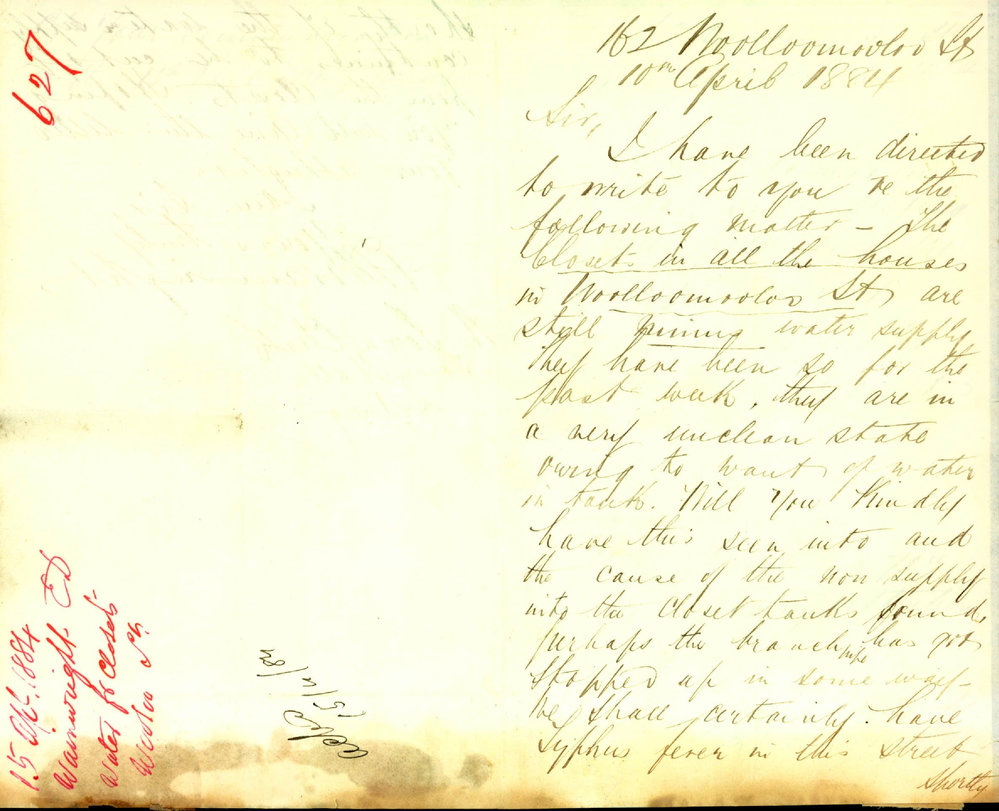 627
15 Apl. 1884
Wainwright ED
Water for Closets
W'loo St
ackd
15/4/84
162 Woolloomooloo St
10th April 1884
Sir,
I have been directed
to write to you re the
following matter – The
Closet in all the houses
in Woolloomooloo St are
still minus water supply
they have been so for the
past week, they are in
a very unclean state
owing to want of water
in tank. Will you Kindly
have this seen into and
the cause of the non supply
into the closet tanks found
perhaps the branch pipe has got
stopped up in some way –
We shall certainly have
Typhus fever in this street
Shortly